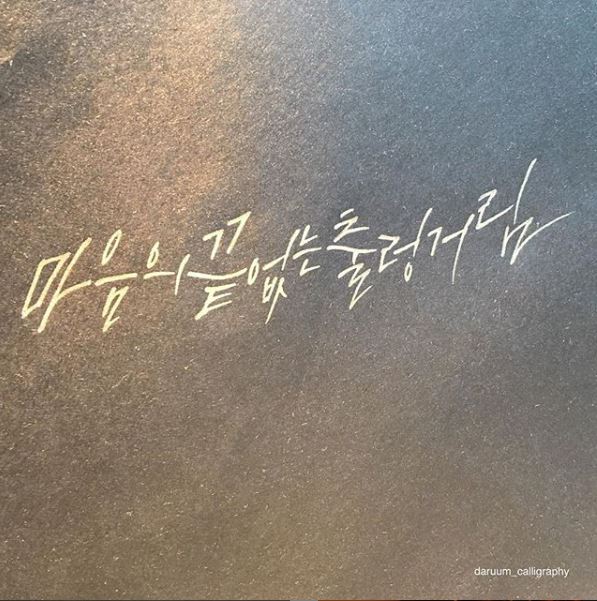 마음의 끝없는 출렁거림
daruum_calligraphy